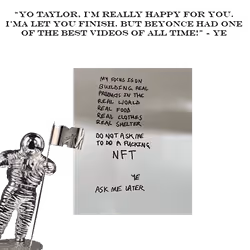 "YO TAYLOR, I'M REALLY HAPPY FOR YOU.
I'MA LET YOU FINISH. BUT BEYONCE HAD ONE
OF THE BEST VIDEOS OF ALL TIME!" - YE
MY FOCUS IS ON
BUILDING REAL
PRODUCTS IN THE
REAL WORLD
REAL FOOD
REAL CLOTHES
REAL SHELTER
DO NOT ASK ME
TO DO A FUCKING
NFT
YE
ASK ME LATER